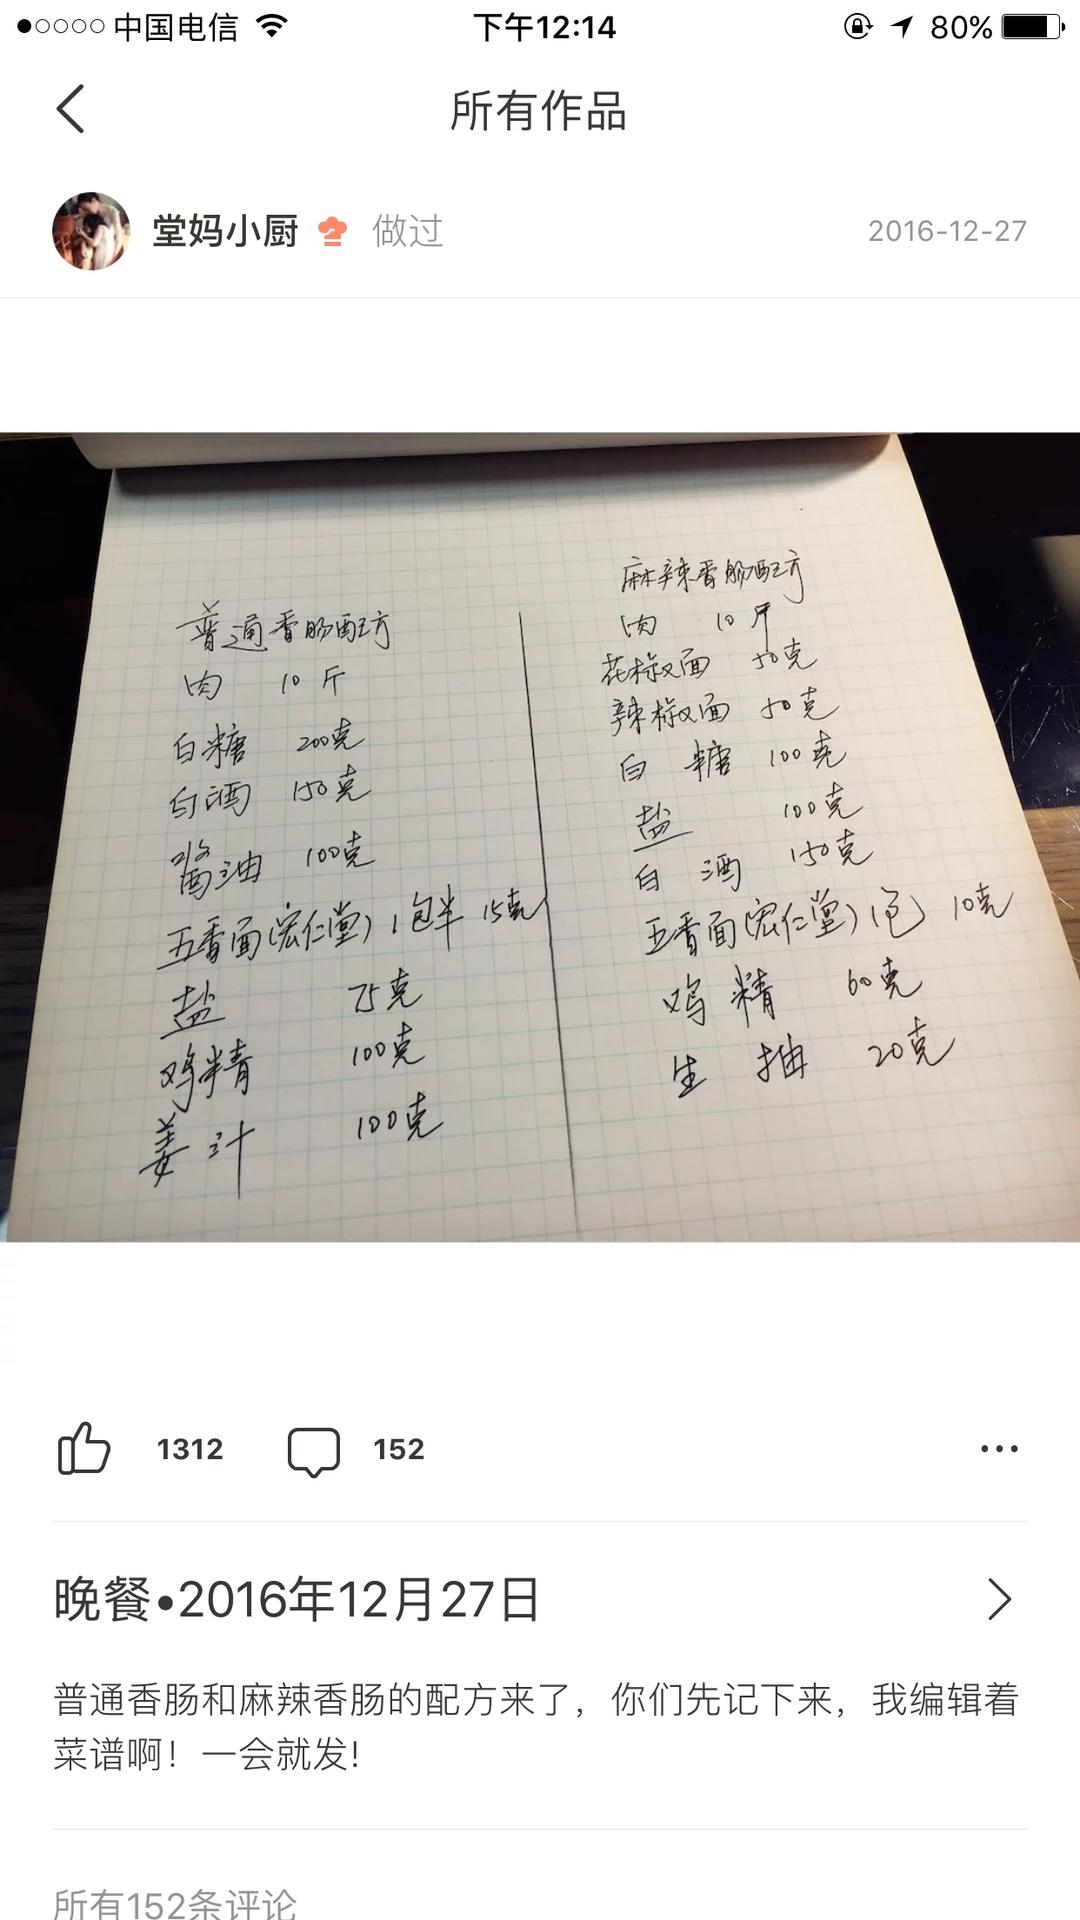 中国电信 下午12:14 80%
所有作品
堂妈小厨 做过 2016-12-27
普通香肠配方
肉 10斤
白糖 200克
白酒 150克
酱油 100克
五香面(宏仁堂) 1包半 15克
盐 75克
鸡精 100克
姜汁 100克
麻辣香肠配方
肉 10斤
花椒面 50克
辣椒面 50克
白糖 100克
盐 100克
白酒 150克
五香面(宏仁堂) 1包 10克
鸡精 60克
生抽 20克
1312 152
晚餐•2016年12月27日
普通香肠和麻辣香肠的配方来了，你们先记下来，我编辑着
菜谱啊！一会就发!
所有152条评论